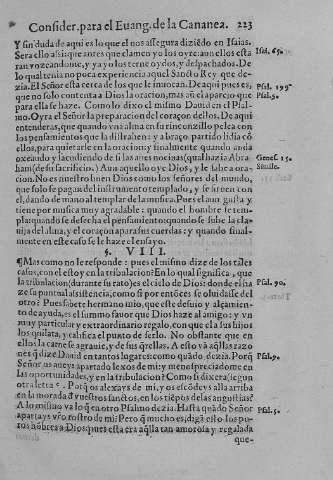 Consider. para el Euang. de la Cananea. 223
Y sin duda de aqui es lo que el nos assegura diziẽdo en Isaias. Isai. 65.
Sera ello assi que antes que clamen yo los oyre. aun ellos esta
ran vozeandome, y ya yo los terne oydos, y despachados. De
lo qual tenia no poca experiencia aquel Sancto Rey que de-
zia. El Señor esta cerca de los que le inuocan. De aqui pues es, Psal. 144
que no solo contenta a Dios la oracion, mas aũ el aparejo que Psal. 9.
para ella se haze. Como lo dixo el mismo Dauid en el Psal-
mo. Oyra el Señor la preparacion del coraçon dellos. De aqui
entenderas, que quando vna alma en su rinconzillo pelea con
los pensamientos que la distrahen: y a brazo partido lidia cõ
ellos, para quietarle en la oracion: y finalmente quando anda
oxeando y sacudiendo de si las aues nociuas (qual hazia Abra- Genes. 15.
ham de su sacrificio,) Aun aquello oye Dios, y le sabe a ora- Simile.
cion. No es nuestro buen Dios como los señores del mundo,
que solo se pagan del instrumento templado, y se siruen con
el, dando de mano al templar de la musica. Pues el aun gusta y
tiene por musica muy agradable: quando el hombre le tem-
pla: quando se desecha el pensamiento: quando se sube la cla-
uija del alma, y el coraçon apara sus cuerdas: y quando final-
mente en este caso se le haze el ensayo.
§. VIII.
¶ Mas como no le responde: pues el mismo dize de los tales
casos, con el estoy en la tribulacion? En lo qual significa, que
la tribulacion (durante su rato) es el cielo de Dios: donde esta Psal. 90.
za su puntual assistencia, como si por entõces se oluidasse del
otro? Pues sabete hermano mio, que este desuio y alçamien-
to de ayuda, es el summo fauor que Dios haze al amigo: y vn
muy particular y extraordinario regalo, con que el a sus hijos
los quilata, y califica el punto de serlo. No obstante que en
ellos la carne se agrauie, y de sus q̃rellas. A esto va aq̃llas razo-
nes q̃ dize Dauid en tantos lugares: como quãdo dezia. Porq̃ Psal. 9.
Señor us aueys apartado lexos de mi: y menospreciadome en
las oportunidades, y en la tribulacion? Como si dixera (segun
otra letra). Porq̃ os alexays de mi, y os escõdeys alla arriba
en la morada d̃ vuestros sanctos, en los tiẽpos de las angustias?
A lo mismo va lo q̃ en otro Psalmo dezia. Hasta quãdo Señor Psal. 5.
apartays vr̃o rostro de mi? Pero q̃ mucho es, diga esto los pu-
ros hõbres a Dios: pues esta era aq̃lla tan amorosa y regalada
que-